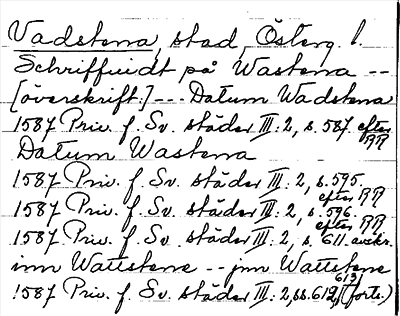 Vadstena, stad, Österg. l.
Schriffuidt på Wastena --
[överskrift:] --- Datum Wadstena
1587 Priv. f. Sv. städer III: 2, s. 587. efter RR
Datum Wastena
1587 Priv. f. Sv. städer III: 2, s. 595.
1587 Priv. f. Sv. städer III: 2, s. 596. efter RR
1587 Priv. f. Sv. städer III: 2, s. 611. efter RR avskr.
inn Wattstene -- jnn Wattstene
1587 Priv. f. Sv. städer III: 2, ss. 612, 613, (forts.)